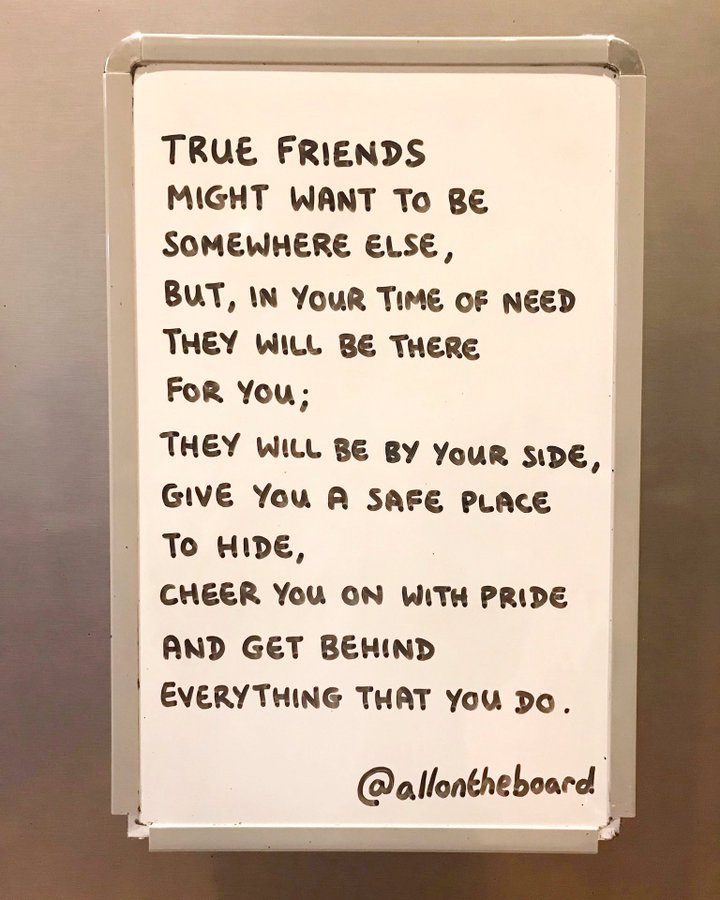 TRUE FRIENDS
MIGHT WANT TO BE
SOMEWHERE ELSE,
BUT, IN YOUR TIME OF NEED
THEY WILL BE THERE
FOR YOU;
THEY WILL BE BY YOUR SIDE,
GIVE YOU A SAFE PLACE
TO HIDE,
CHEER YOU ON WITH PRIDE
AND GET BEHIND
EVERYTHING THAT YOU DO.
@allontheboard